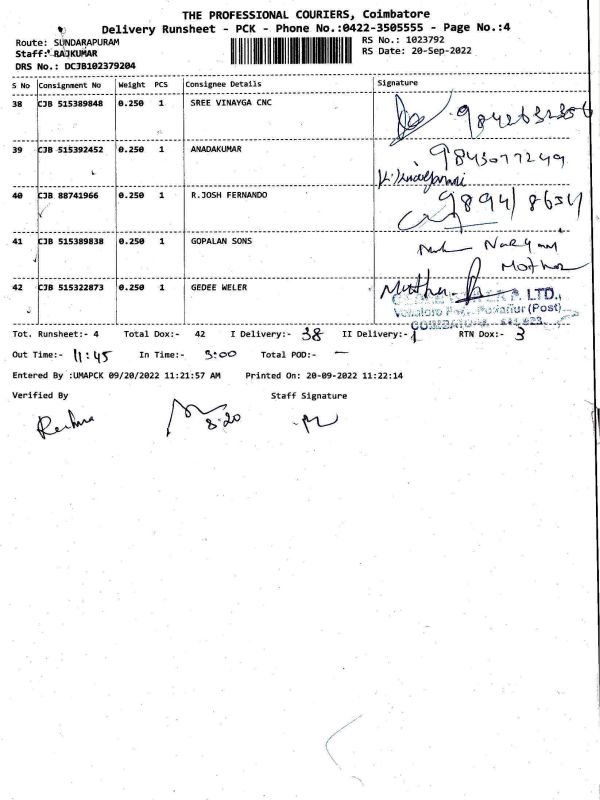 THE PROFESSIONAL COURIERS, Coimbatore
Delivery Runsheet - PCK - Phone No.:0422-3505555 - Page No.:4
Route: SUNDARAPURAM
RS No.: 1023792
Staff: RAJKUMAR
RS Date: 20-Sep-2022
DRS No.: DCJB102379204
S No Consignment No Weight PCS Consignee Details Signature
38 CJB 515389848 0.250 1 SREE VINAYGA CNC
39 CJB 515392452 0.250 1 ANADAKUMAR 9843077249
40 CJB 88741966 0.250 1 R.JOSH FERNANDO
41 CJB 515389838 0.250 1 GOPALAN SONS
42 CJB 515322873 0.250 1 GEDEE WELER Muthu
P. LTD.,
(Post)
Tot. Runsheet:- 4 Total Dox:- 42 I Delivery:- 38 II Delivery:- 1 RTN Dox:- 3
Out Time:- 11:45 In Time:- 3:00 Total POD:- —
Entered By :UMAPCK 09/20/2022 11:21:57 AM Printed On: 20-09-2022 11:22:14
Verified By Staff Signature
8:20